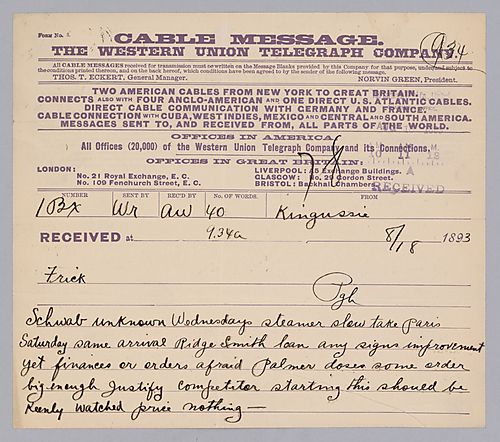 FORM No.
CABLE MESSAGE.
THE WESTERN UNION TELEGRAPH COMPANY.
All CABLE MESSAGES received for transmission must be written on the Message Blanks provided by this Company for that purpose, under and subject to
the conditions printed thereon, and on the back hereof, which conditions have been agreed to by the sender of the following message.
THOS. T. ECKERT, General Manager. NORVIN GREEN, President.
TWO AMERICAN CABLES FROM NEW YORK TO GREAT BRITAIN.
CONNECTS ALSO WITH FOUR ANGLO-AMERICAN AND ONE DIRECT U.S. ATLANTIC CABLES.
DIRECT CABLE COMMUNICATION WITH GERMANY AND FRANCE.
CABLE CONNECTION WITH CUBA, WEST INDIES, MEXICO AND CENTRAL AND SOUTH AMERICA.
MESSAGES SENT TO, AND RECEIVED FROM, ALL PARTS OF THE WORLD.
OFFICES IN AMERICA:
All Offices (20,000) of the Western Union Telegraph Company and its Connections.
OFFICES IN GREAT BRITAIN:
LONDON: LIVERPOOL: Exchange Buildings.
No. 21 Royal Exchange, E. C. GLASGOW: No. 29 Gordon Street.
No. 109 Fenchurch Street, E. C. BRISTOL: Backhall Chambers
RECEIVED
NUMBER SENT BY REC'D BY NO. OF WORDS. FROM
Wr aw 40 Kingussie
RECEIVED at 9.34a 8/18 1893
Frick
Pgh
Schwab unknown Wednesdays steamer slow take Paris
Saturday same arrival Ridge Smith loan any signs improvement
yet finances or orders afraid Palmer doses some order
big enough Justify Competitor starting this should be
Keenly Watched price nothing —